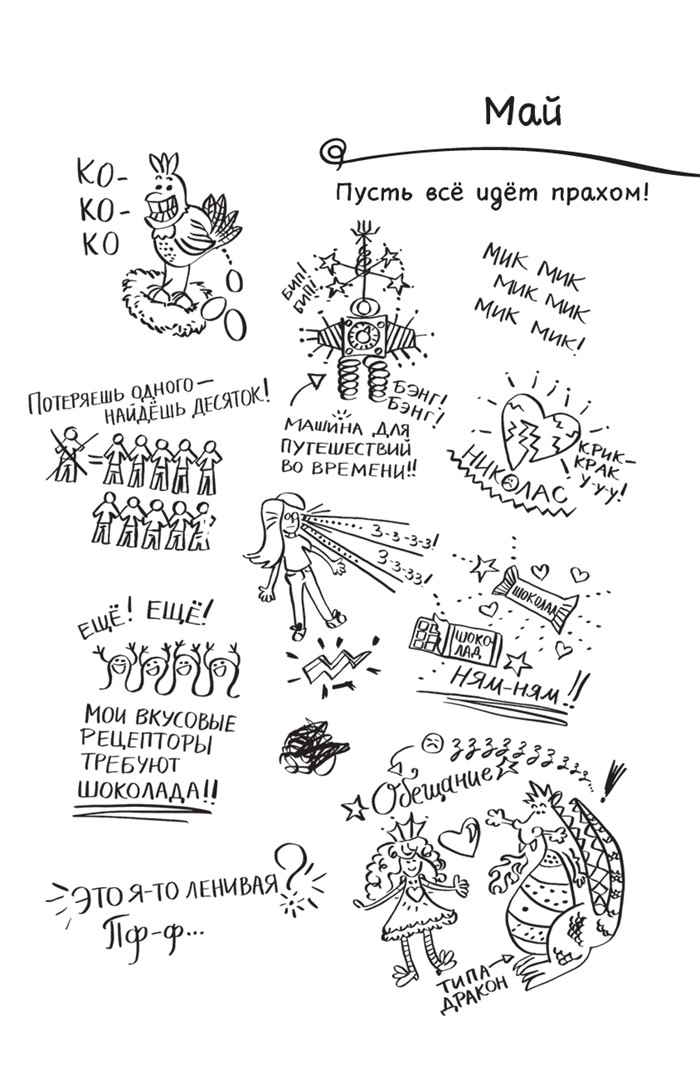 Май
Пусть всё идёт прахом!
КО-
КО-
КО
БИП!
БИП!!
БЭНГ!
БЭНГ!
МАШИНА ДЛЯ
ПУТЕШЕСТВИЙ
ВО ВРЕМЕНИ!!
МИК МИК
МИК МИК
МИК МИК!
ПОТЕРЯЕШЬ ОДНОГО—
НАЙДЁШЬ ДЕСЯТОК!
=
НИКОЛАС
КРИК-
КРАК
У-У-У!
З-З-З-З!
З-З-ЗЗ!
ЕЩЁ! ЕЩЁ!
МОИ ВКУСОВЫЕ
РЕЦЕПТОРЫ
ТРЕБУЮТ
ШОКОЛАДА!!
ШОКОЛАД
ШОКО-
ЛАД
НЯМ-НЯМ!!
zzzzzzzzzz...
Обещание
!
ЭТО Я-ТО ЛЕНИВАЯ?
Пф-ф...
ТИПА
ДРАКОН